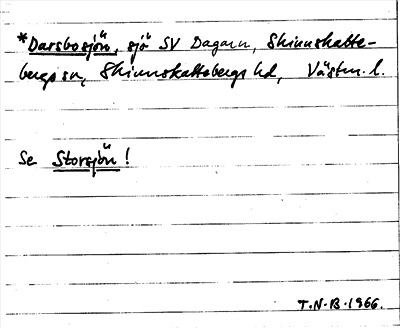 *Darsbosjön, sjö SV Dagarn, Skinnskatte-
bergs sn, Skinnskattebergs hd, Västm. l.
Se Storsjön!
T.N.B. 1966.